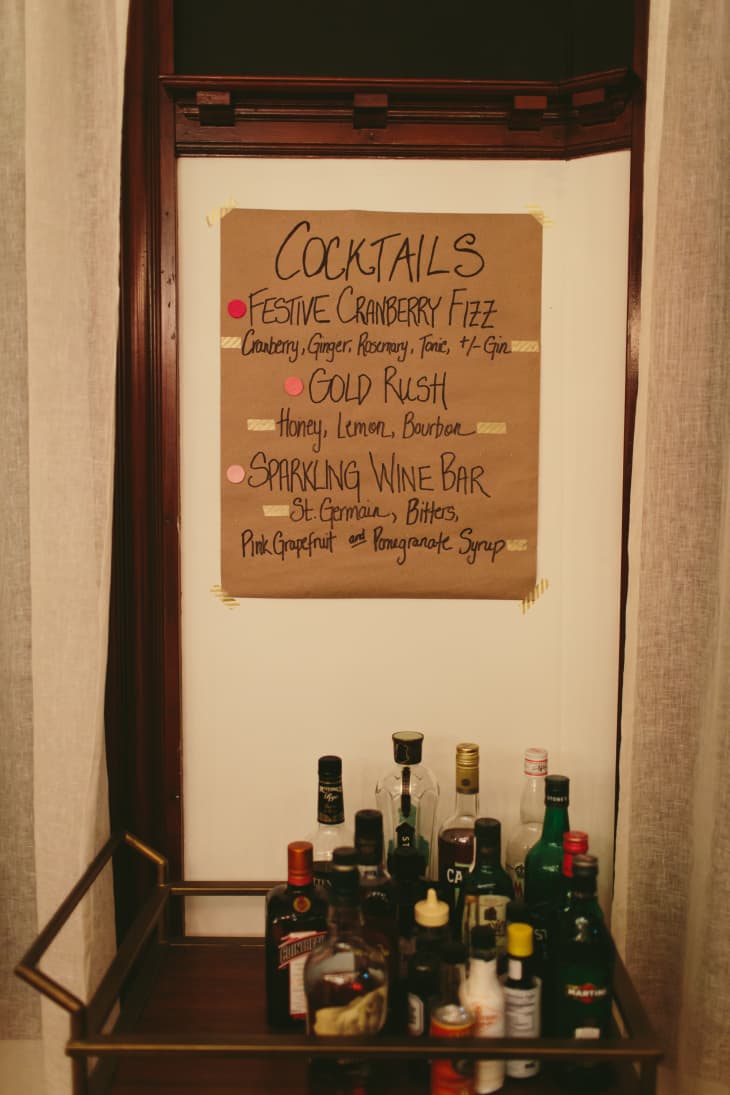 COCKTAILS
FESTIVE CRANBERRY FIZZ
Cranberry, Ginger, Rosemary, Tonic, +/- Gin
GOLD RUSH
Honey, Lemon, Bourbon
SPARKLING WINE BAR
St. Germain, Bitters,
Pink Grapefruit and Pomegranate Syrup
CA
COINTREAU
MARTINI